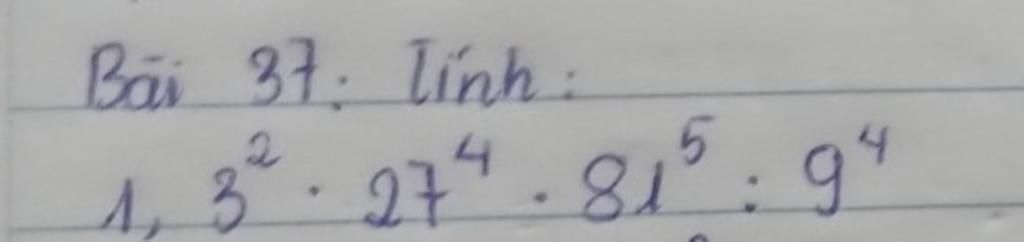 Bài 37: Tính:
1, 3² · 27⁴ · 81⁵ : 9⁴